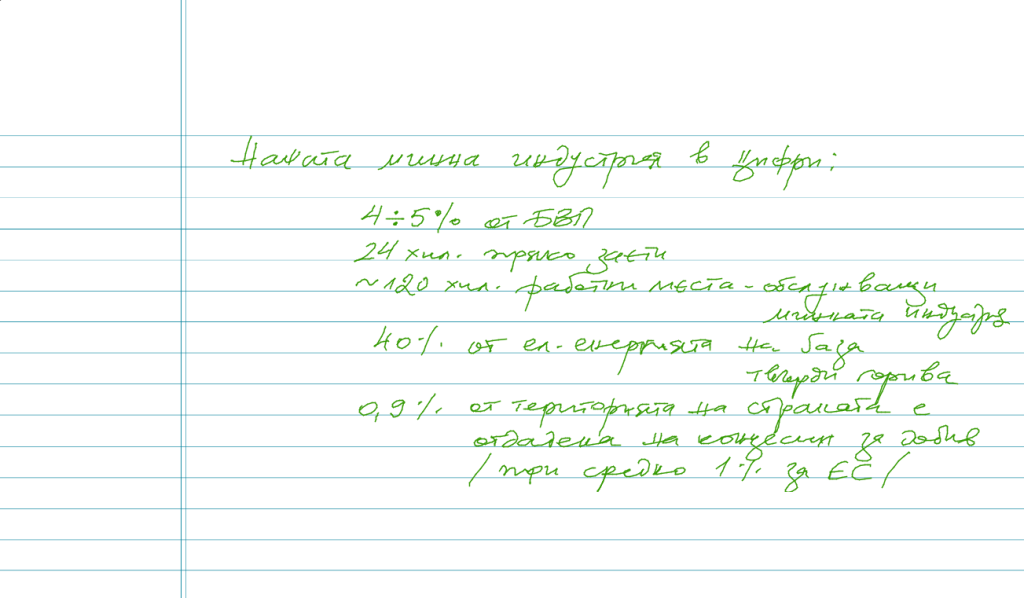 Нашата минна индустрия в цифри:
4÷5% от БВП
24 хил. пряко заети
~120 хил. работни места - обслужващи
минната индустрия
40% от ел. енергията на база
твърди горива
0,9% от територията на страната е
отдадена на концесии за добив
/при средно 1% за ЕС/